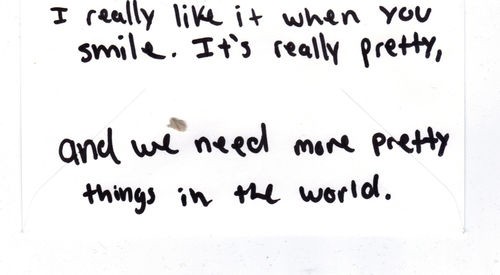 I really like it when you
smile. It's really pretty,
and we need more pretty
things in the world.